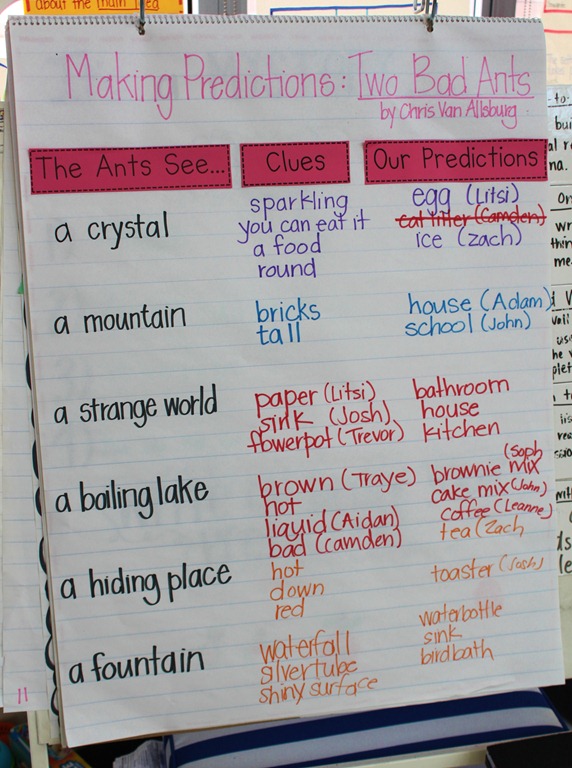 about the main idea
Making Predictions: Two Bad Ants
by Chris Van Allsburg
The Ants See... Clues Our Predictions
a crystal
sparkling
you can eat it
a food
round
egg (Litsi)
cat litter (Camden)
ice (Zach)
a mountain
bricks
tall
house (Adam)
school (John)
a strange world
paper (Litsi)
sink (Josh)
flowerpot (Trevor)
bathroom
house
kitchen
a boiling lake
brown (Traye)
hot
liquid (Aidan)
bad (Camden)
(Soph
brownie mix
cake mix (John)
coffee (Leanne)
tea (Zach
a hiding place
hot
down
red
toaster (Josh)
a fountain
waterfall
silvertube
shiny surface
waterbottle
sink
birdbath
11